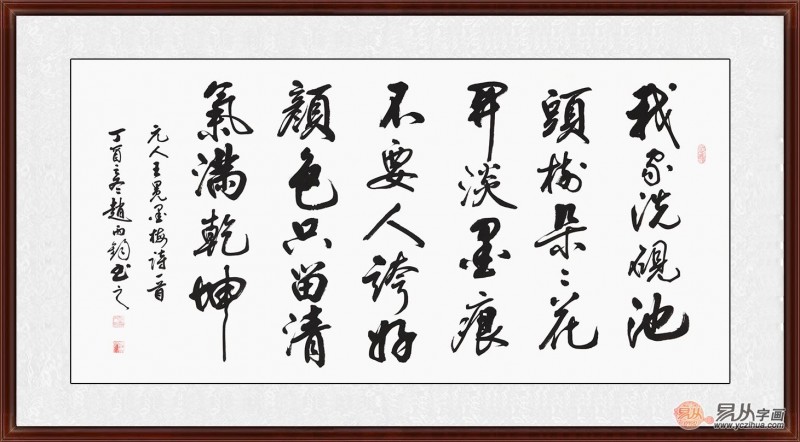 我家洗硯池
頭樹朵々花
開淡墨痕
不要人誇好
顏色只留清
氣滿乾坤
元人王冕墨梅詩一首
丁酉冬趙雨鈞書之
易从字画
www.yczihua.com